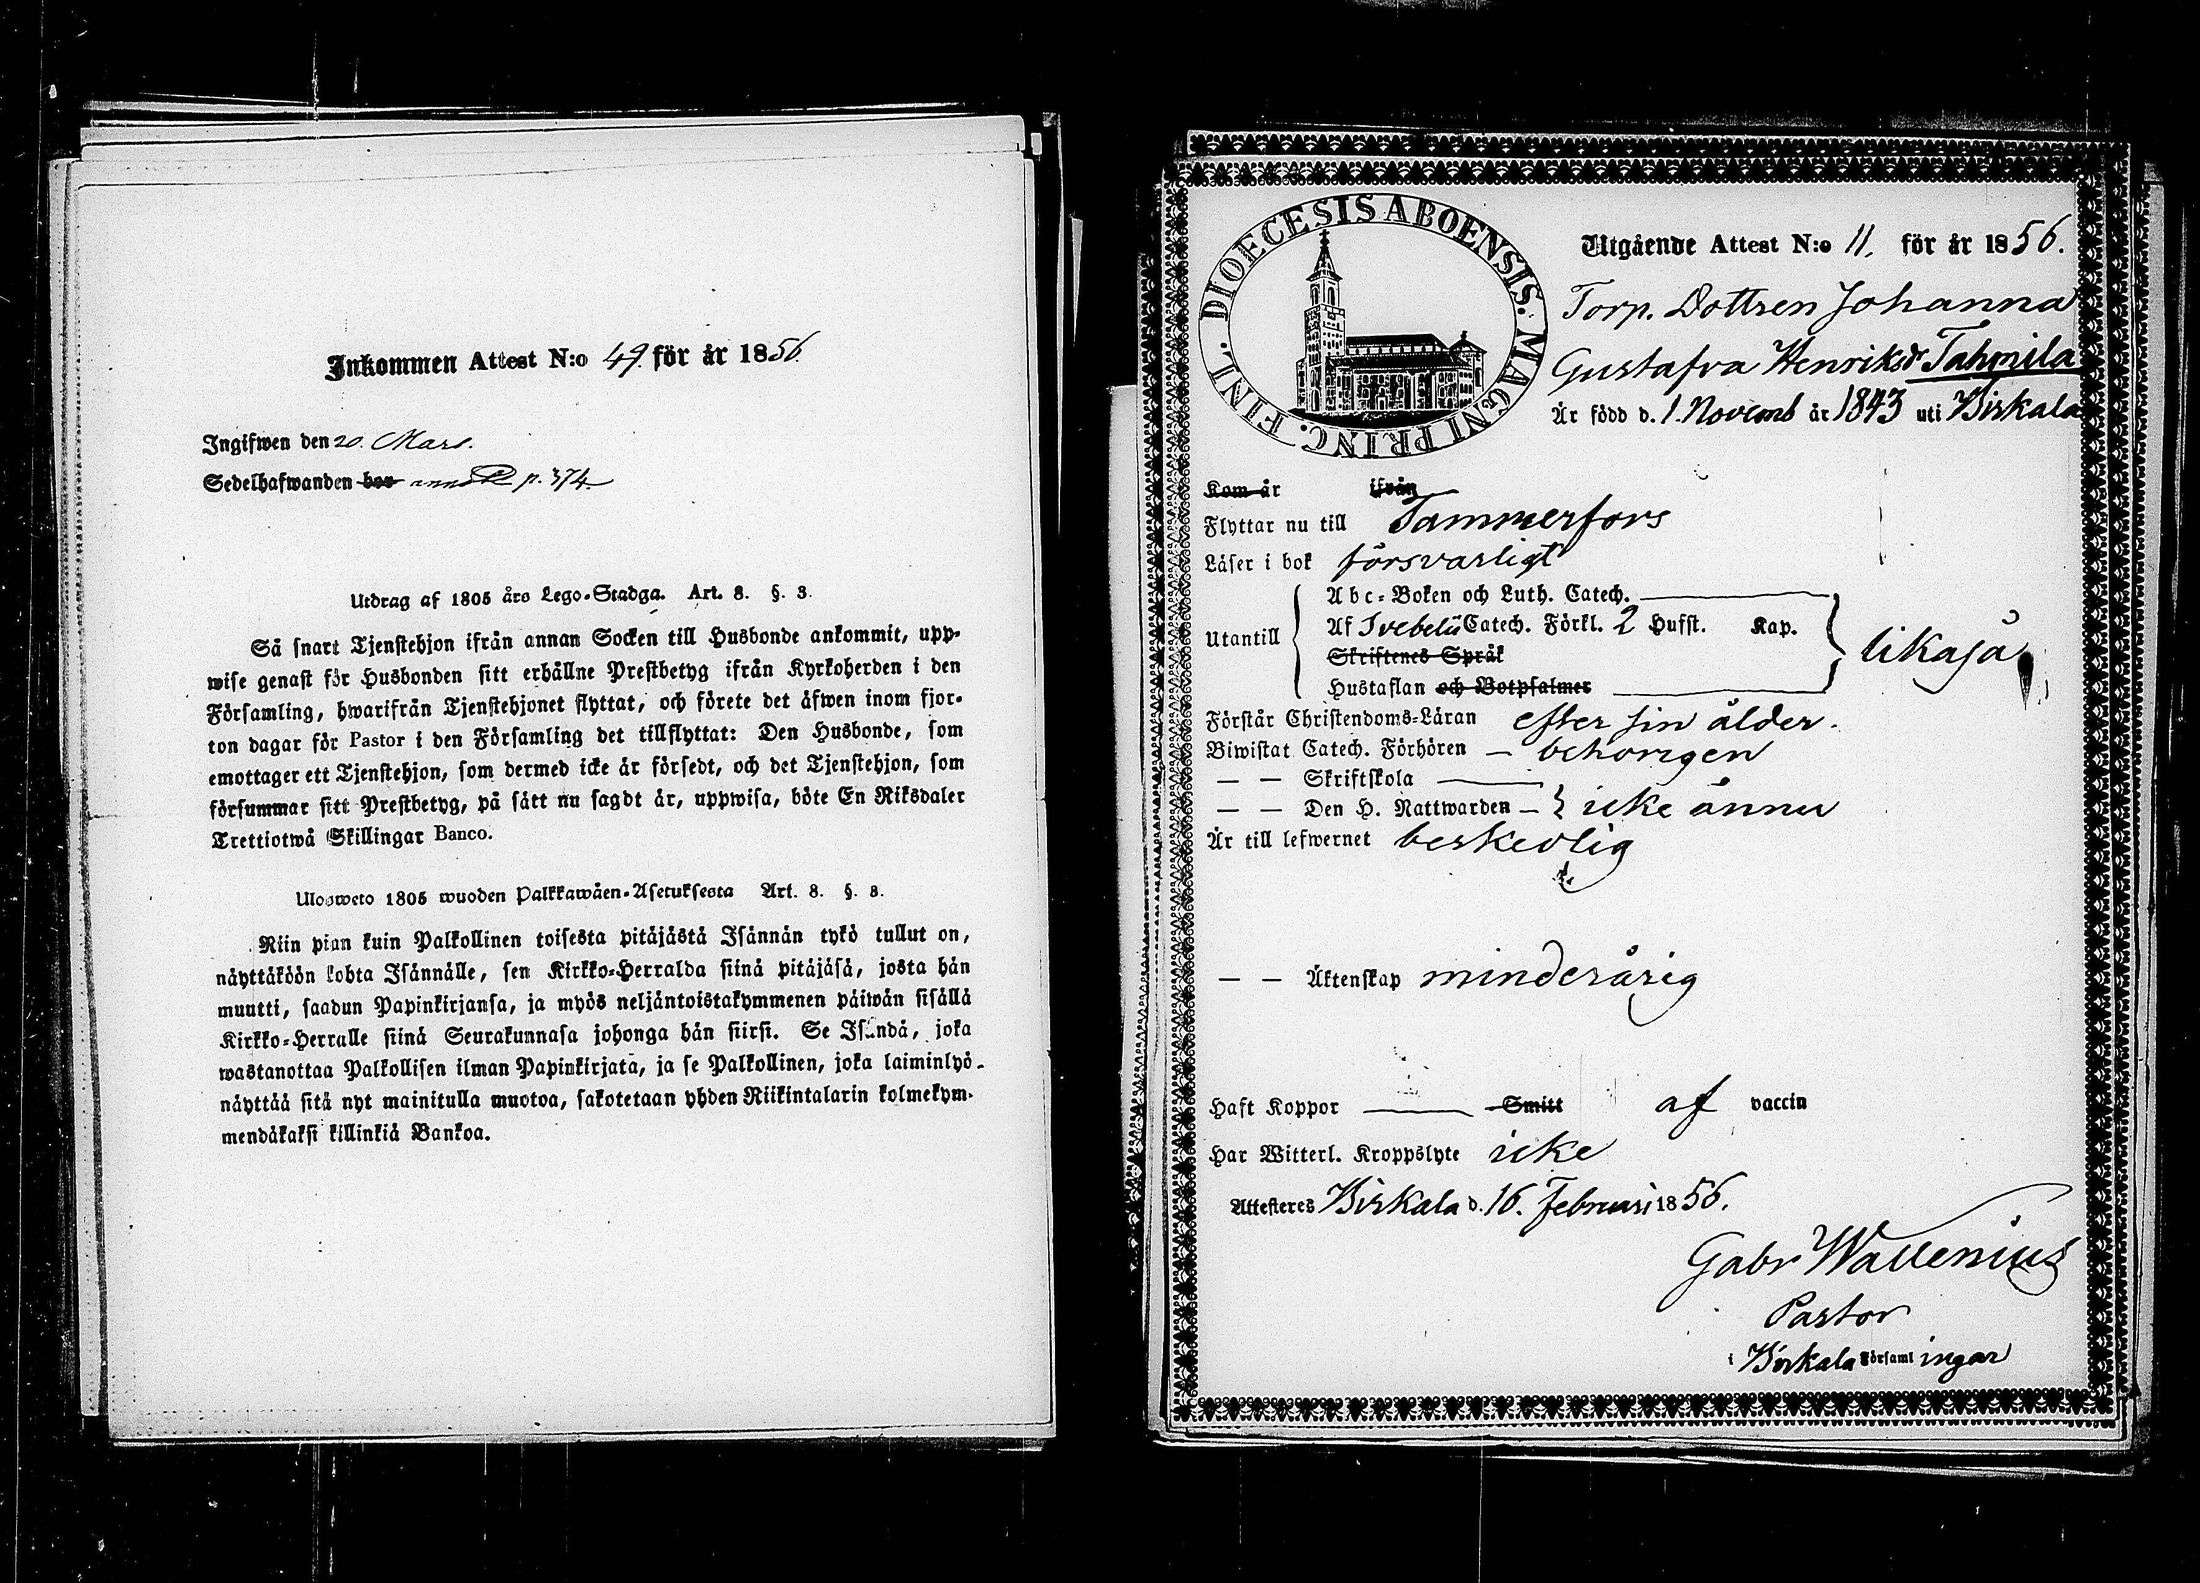 Inkommen Attest N:o 49. för år 1856.
Ingifwen den 20. Mars.
Sedelhafwanden bor p. 374.
Utdrag af 1805 års Lego-Stadga. Art. 8. §. 3.
Så snart Tjenstehjon ifrån annan Socken till Husbonde ankommit, upp-
wise genast för Husbonden sitt erhållne Prestbetyg ifrån Kyrkoherden i den
Församling, hwarifrån Tjenstehjonet flyttat, och förete det äfwen inom fjor-
ton dagar för Pastor i den Församling det tillflyttat: Den Husbonde, som
emottager ett Tjenstehjon, som dermed icke är försedt, och det Tjenstehjon, som
försummar sitt Prestbetyg, på sätt nu sagdt är, uppwisa, böte En Riksdaler
Trettiotwå Skillingar Banco.
Ulosweto 1805 wuoden Palkkawäen-Asetuksesta Art. 8. §. 8.
Niin pian kuin Palkollinen toisesta pitäjästä Isännän tykö tullut on,
näyttäköön kohta Isännälle, sen Kirkko-Herralda siinä pitäjäsä, josta hän
muutti, saadun Papinkirjansa, ja myös neljäntoistakymmenen päiwän sisällä
Kirkko-Herralle siinä Seurakunnasa johonga hän siirsi. Se Isändä, joka
wastanottaa Palkollisen ilman Papinkirjata, ja se Palkollinen, joka laiminlyö-
näyttää sitä nyt mainitulla muotoa, sakotetaan yhden Riikintalarin kolmekym-
mendäkaksi killinkiä Bankoa.
DIOECESIS ABOENSIS. MAGNI PRINC. FINL.
Utgående Attest N:o 11. för år 1856.
Torp. Dottren Johanna
Gustafva Henriksdr Tahmila
Är född d. 1. Novemb år 1843 uti Birkala
Kom år ifrån
Flyttar nu till Tammerfors
Läser i bok försvarligt
Abc-Boken och Luth. Catech.
Utantill Af Svebelii Catech. Förkl. 2 Hufst. Kap. likaså
Skriftenes Språk
Hustaflan och Botpsalmer
Förstår Christendoms-Läran efter sin ålder.
Biwistat Catech. Förhören – behörigen
— — Skriftskola
— — Den H. Nattwarden – icke ännu
Är till lefwernet beskedlig
— — Äktenskap minderårig
Haft Koppor Smitt af vaccin
Har Witterl. Kroppslyte icke
Attesteres Birkala d. 16. Februari 1856.
Gabr Wallenius
Pastor
i Birkala Församlingar